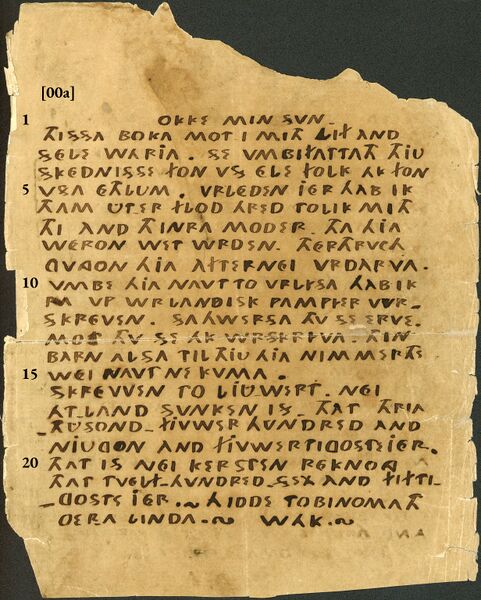 [00a]
1 OKKE MIN SVN.
THISSA BOKA MOT I MITH LIF AND
SELE WARIA. SE VMBIFATTATH THIU
SKEDNISSE FON VS ELE FOLK AK FON
5 VSA ETHLUM. VRLEDEN IER HAB IK
THAM UTER FLOD HRED TOLIK MITH
THI AND THINRA MODER. THA HIA
WERON WET WRDEN. THERTHRVCH
GVNGON HIA AFTERNEI VRDARVA.
10 VMBE HIA NAVT TO VRLISA HAB IK
RA VP WRLANDISK PAMPIER WR-
SKREVEN. SAHWERSA THU SE ERVE.
MOT THU SE AK WRSKRIVA. THIN
BARN ALSA TIL THIU HIA NIMMERTHE
15 WEI NAVT NE KVMA.
SKREVVEN TO LIUWERT. NEI
ATLAND SUNKEN IS. THAT THRIA
THUSOND-FIUWER HUNDRED AND
NIUGON AND FIUWERTIGOSTE IER.
20 THAT IS NEI KERSTEN REKNONG
THAT TVELF-HUNDRED SEX AND FIFTI-
GOSTE IER.~ HIDDE TOBINOMATH
OERA LINDA.~ WAK.~